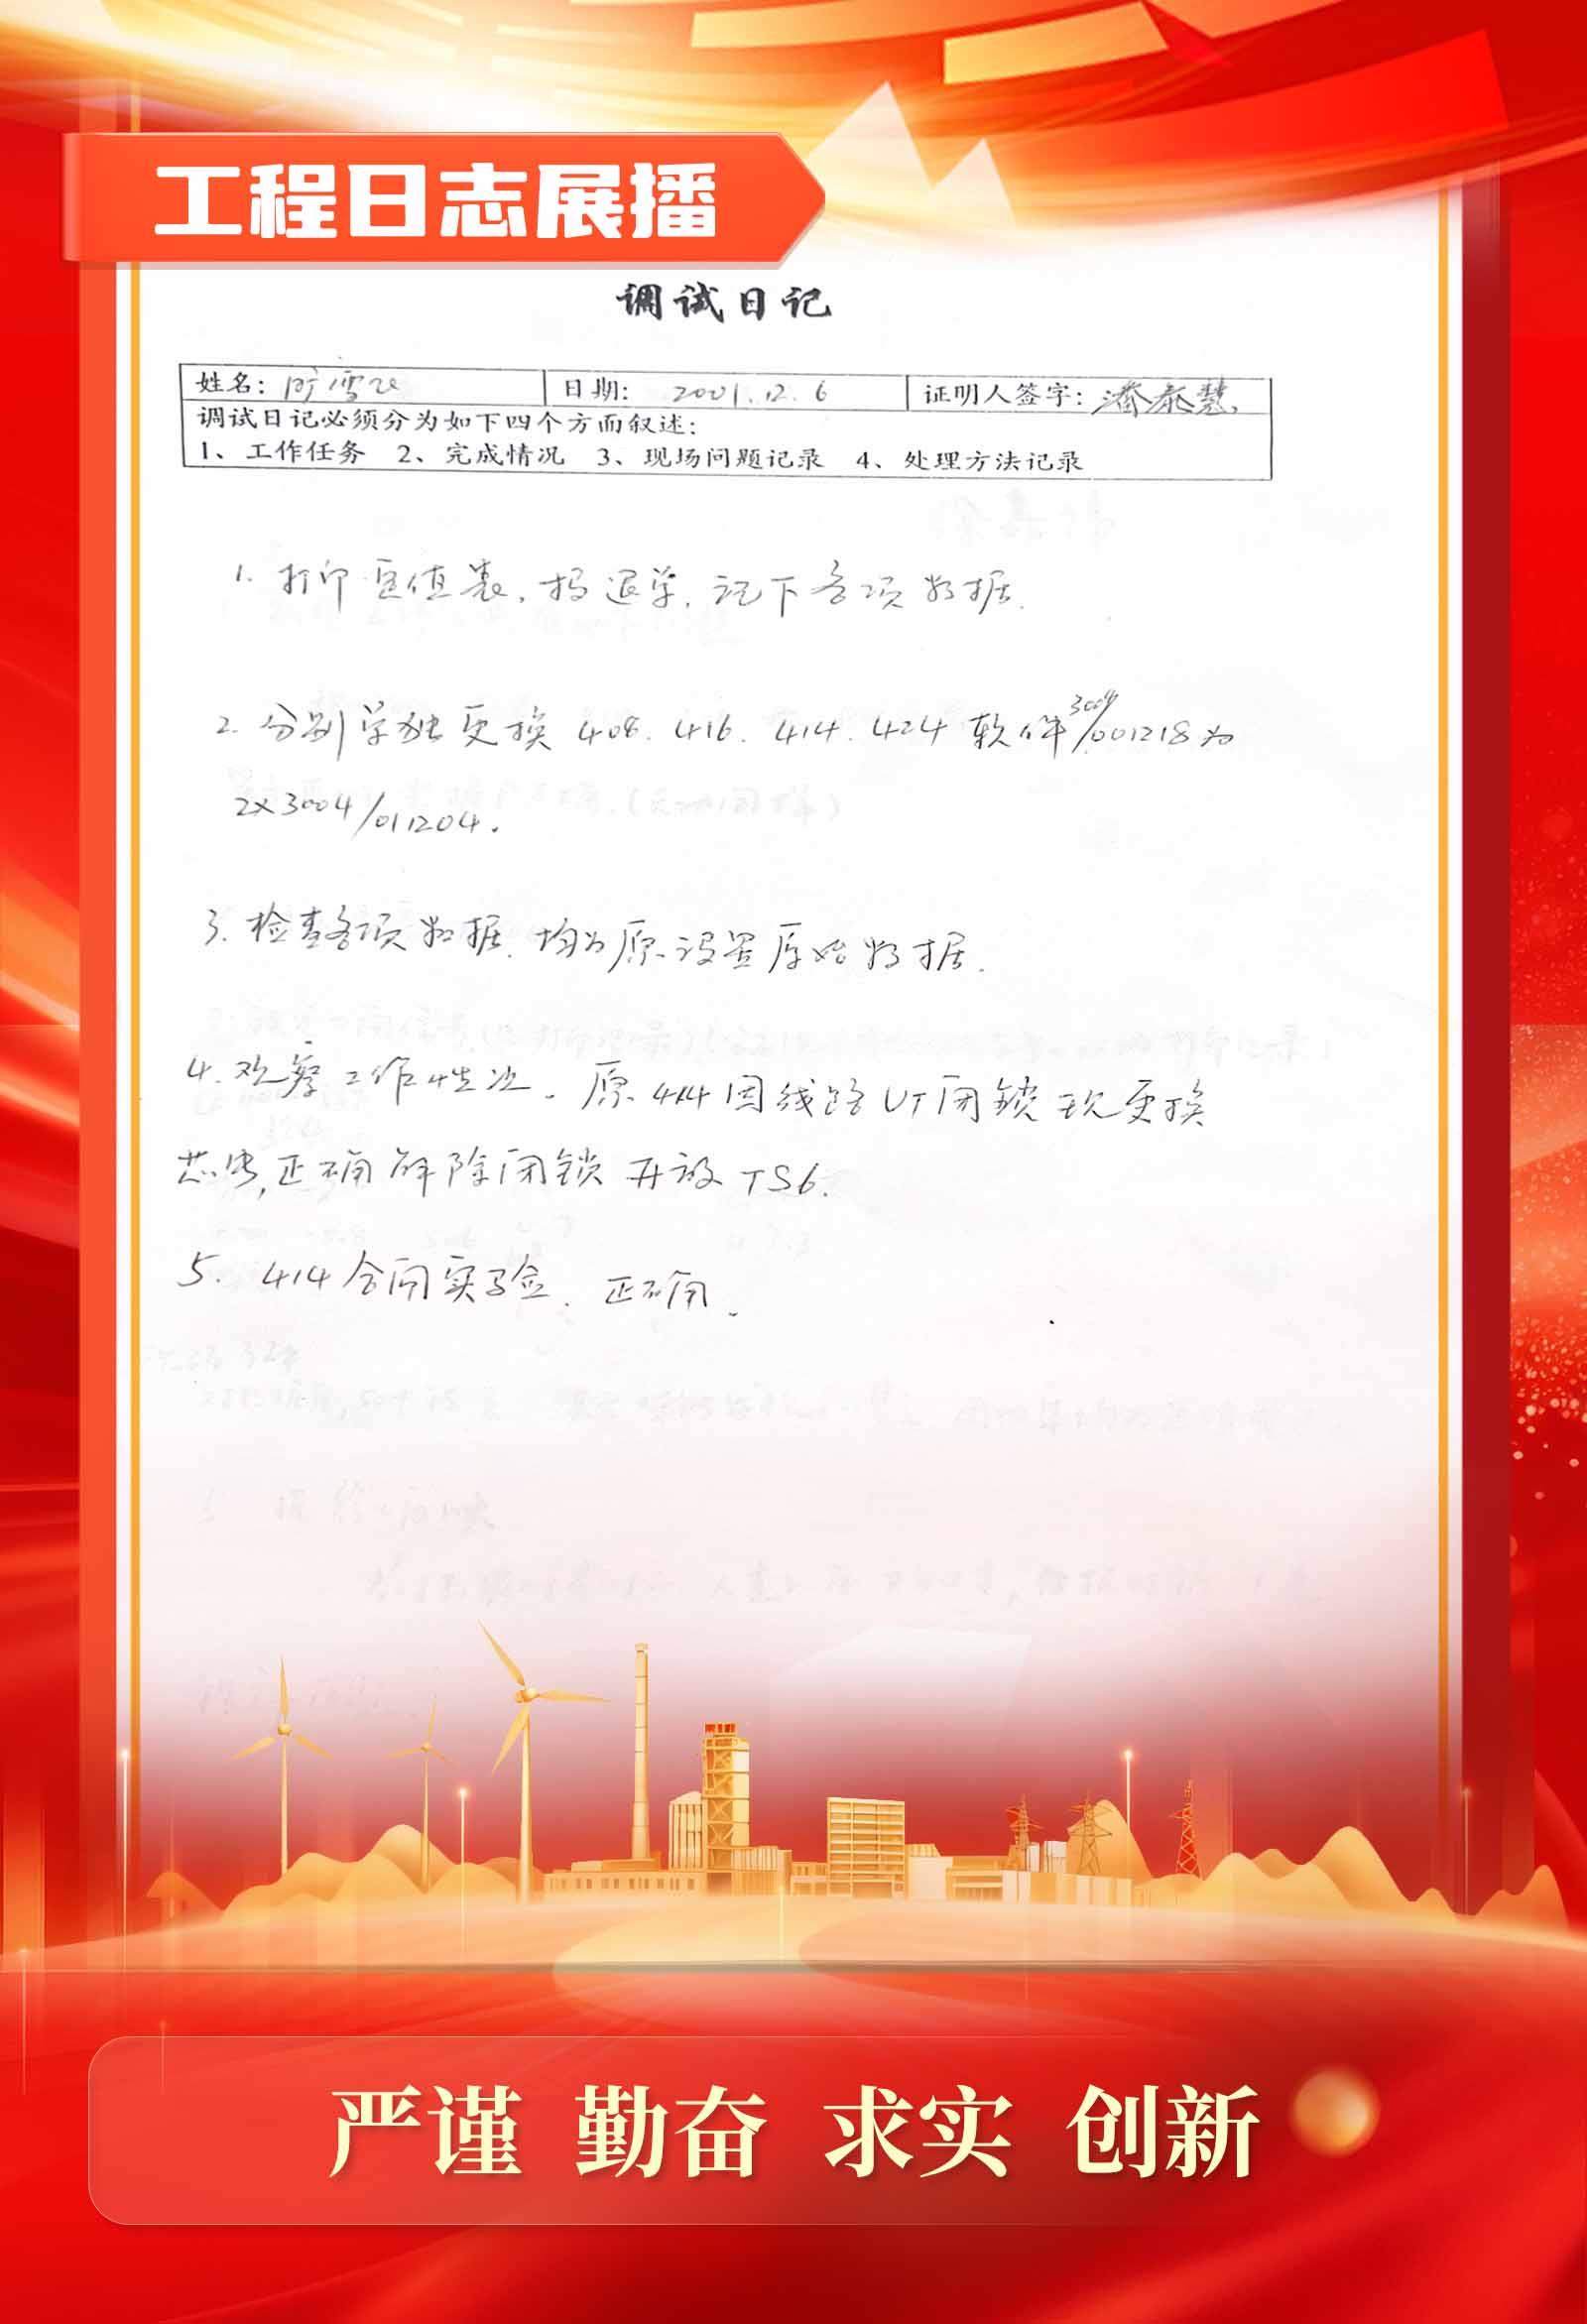 工程日志展播
调试日记
姓名: 日期: 2001.12.6 证明人签字: 潘泰慧
调试日记必须分为如下四个方面叙述:
1、工作任务 2、完成情况 3、现场问题记录 4、处理方法记录
1. 打印定值表, 记下各项数据.
2. 分别单独更换 408. 416. 414. 424 软件 3004/001218 为
2x3004/011204.
3. 检查各项数据. 均为原设置原始数据.
4. 观察工作情况. 原 414 因线路 UT 闭锁 现更换
芯片, 正确解除闭锁 开放 TS6.
5. 414 合闸实验. 正确.
严谨 勤奋 求实 创新